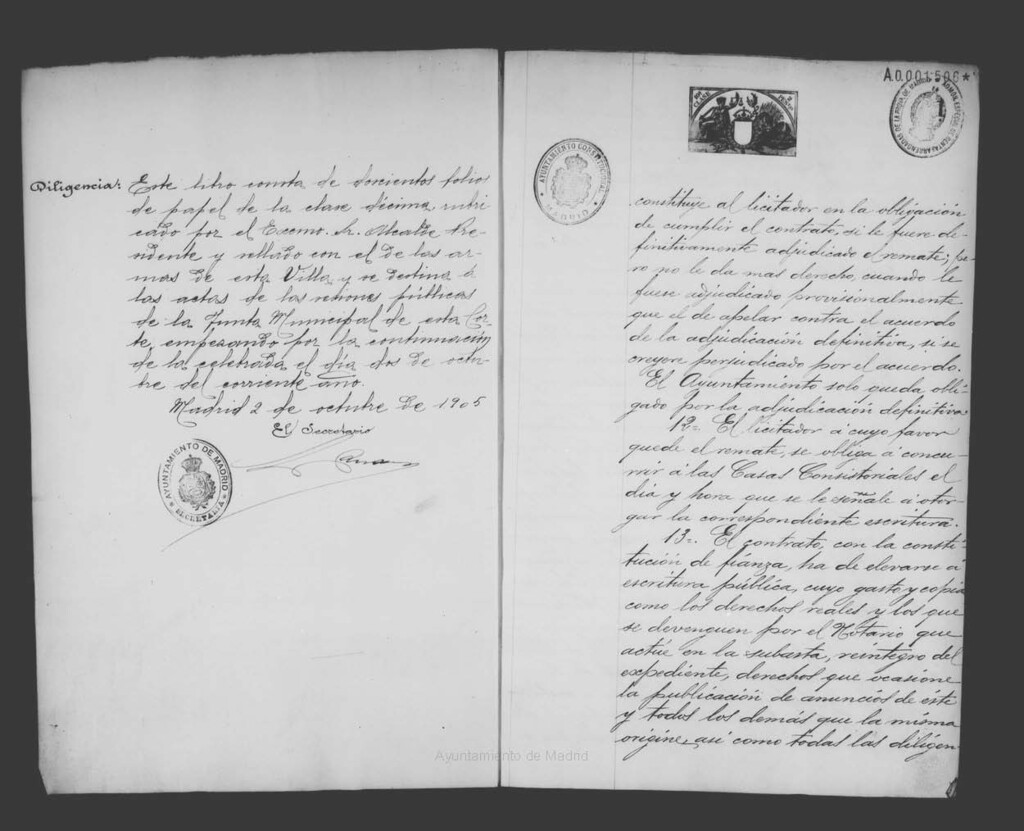 Diligencia: Este libro consta de doscientos folios
de papel de la clase décima rubri
cado por el Excmo. Sr. Alcalde Pre-
sidente y sellado con el de las ar-
mas de esta Villa y se destina á
las actas de las sesiones públicas
de la Junta Municipal de esta Cor-
te, empezando por la continuación
de la celebrada el día dos de octu-
bre del corriente año.
Madrid 2 de octubre de 1905
El Secretario
AYUNTAMIENTO DE MADRID
SECRETARIA
A.0.001.506*
AYUNTAMIENTO CONSTITUCIONAL
MADRID
constituye al licitador en la obligación
de cumplir el contrato, si le fuere de-
finitivamente adjudicado el remate; pe-
ro no le da mas derecho, cuando le
fuese adjudicado provisionalmente
que el de apelar contra el acuerdo
de la adjudicación definitiva, si se
creyere perjudicado por el acuerdo.
El Ayuntamiento solo queda obli-
gado por la adjudicación definitiva
12ª. El licitador á cuyo favor
quede el remate, se obliga á concu-
rrir á las Casas Consistoriales el
día y hora que se le señale á otor-
gar la correspondiente escritura.
13ª. El contrato, con la consti-
tución de fianza, ha de elevarse á
escritura pública, cuyo gasto y copia
como los derechos reales y los que
se devenguen por el Notario que
actúe en la subasta, reintegro del
expediente, derechos que ocasione
la publicación de anuncios de éste
y todos los demás que la misma
origine, así como todas las diligen
Ayuntamiento de Madrid